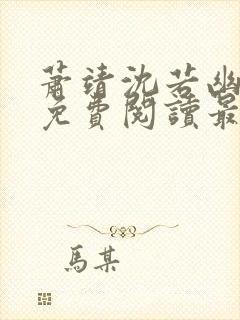 蕭靖沈若幽
免費閱讀最
馬某